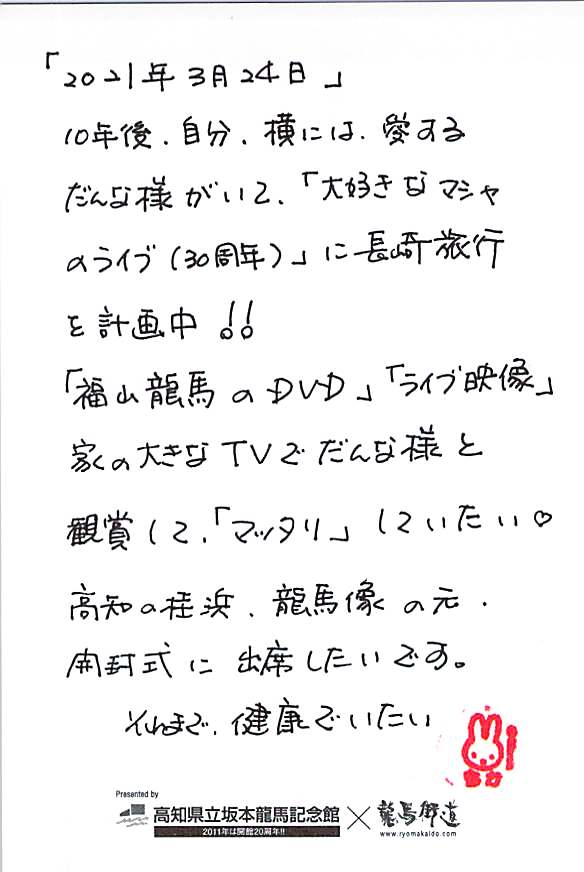 「2021年3月24日」
10年後、自分、横には、愛する
だんな様がいて、「大好きなマシャ
のライブ(30周年)」に長崎旅行
を計画中!!
「福山龍馬のDVD」「ライブ映像」
家の大きなTVでだんな様と
観賞して、「マッタリ」していたい♡
高知の桂浜、龍馬像の元、
開封式に出席したいです。
それまで、健康でいたい
Presented by
高知県立坂本龍馬記念館 × 龍馬街道
2011年は開館20周年!!
www.ryomakaido.com